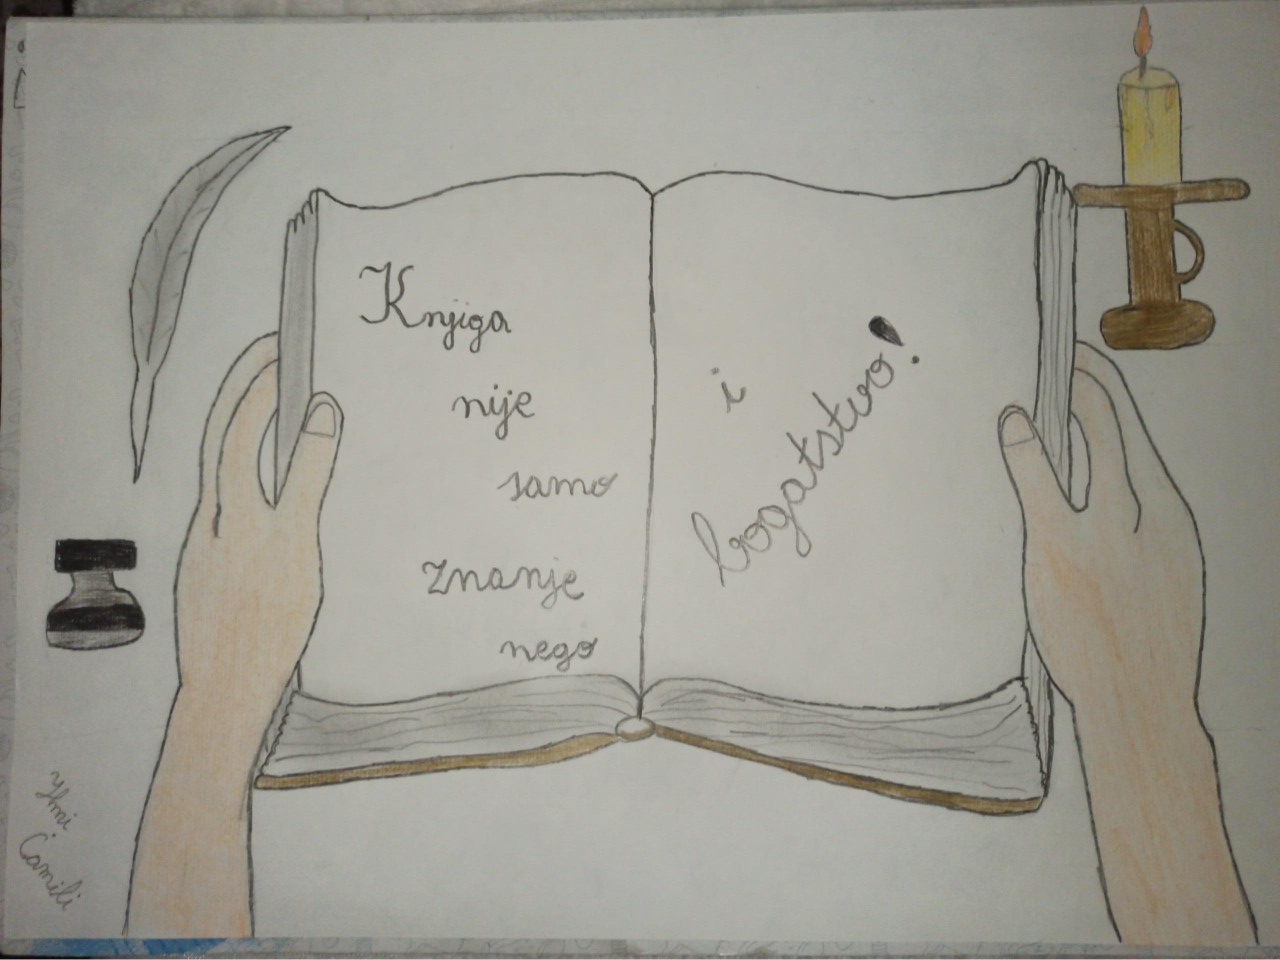 Knjiga
nije
samo
znanje
nego
i
bogatstvo!
Ylmi
Camili